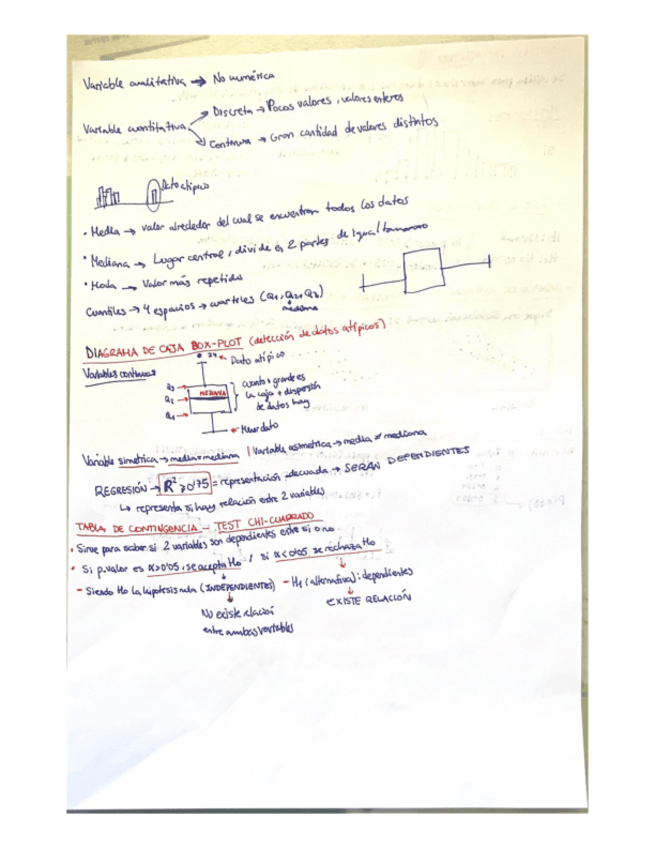 Variable cualitativa → No numérica
Discreta → Pocos valores, valores enteros
Variable cuantitativa
Continua → Gran cantidad de valores distintos
Dato atípico
• Media → valor alrededor del cual se encuentran todos los datos
• Mediana → Lugar central, divide en 2 partes de igual tamaño
• Moda → Valor más repetido
Cuantiles → 4 espacios → cuartiles (Q1, Q2, Q3)
mediana
DIAGRAMA DE CAJA BOX-PLOT (detección de datos atípicos)
Variables continuas
24 Dato atípico
Q3
MEDIANA
Q2
Q1
cuanto + grande es
la caja + dispersión
de datos hay
Menor dato
Variable simétrica → media = mediana | Variable asimetrica → media ≠ mediana
REGRESIÓN → R² ≥ 0'75 = representación adecuada → SERAN DEPENDIENTES
↳ representa si hay relación entre 2 variables
TABLA DE CONTINGENCIA - TEST CHI-CUADRADO
• Sirve para saber si 2 variables son dependientes entre si o no
• Si p.valor es α>0'05, se acepta Ho / si α<0'05 se rechaza Ho
- Siendo Ho la hipotesis nula (INDEPENDIENTES) - H1 (alternativa): dependientes
No existe relación
entre ambas variables
EXISTE RELACIÓN